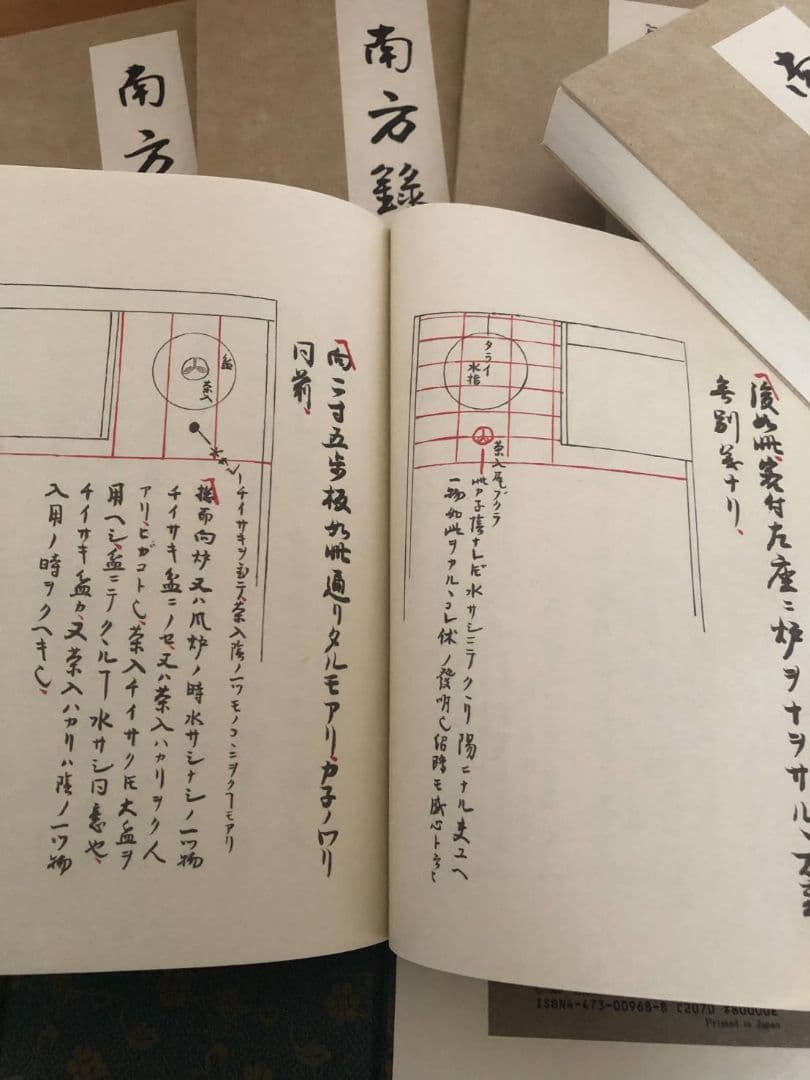 南方
南方錄
後如此、裳付左座ニ炉ヲナヲサル
無別義ナリ、
タライ
水指
茶入尾ブクラ
此子陰ナレ𪜈水サシニテクヽリ陽ニナル
一物如此ヲカル、コレ休ノ發明也紹鴎モ感心ト云々
向二寸五歩板如此通リタルモアリ、カ子ノワリ
同前、
盆
茶入
チイサキヲ
茶入陰ノ一ツモノコヽニヲクフモアリ
向炉又ハ爪炉ノ時水サシナシノ一ツ物
チイサキ盆ニノセ、又ハ茶入ハカリヲク人
アリ、ヒガコト也、茶入チイサク𪜈大盆ヲ
用ヘシ、盆ニテクヽルヿ水サシ同意也、
チイサキ盆カ、又茶入ハカリハ陰ノ一ツ物
入用ノ時ヲクヘキ也、
ISBN4-473-00968-8 C2070 ¥80000E
Printed in Japan